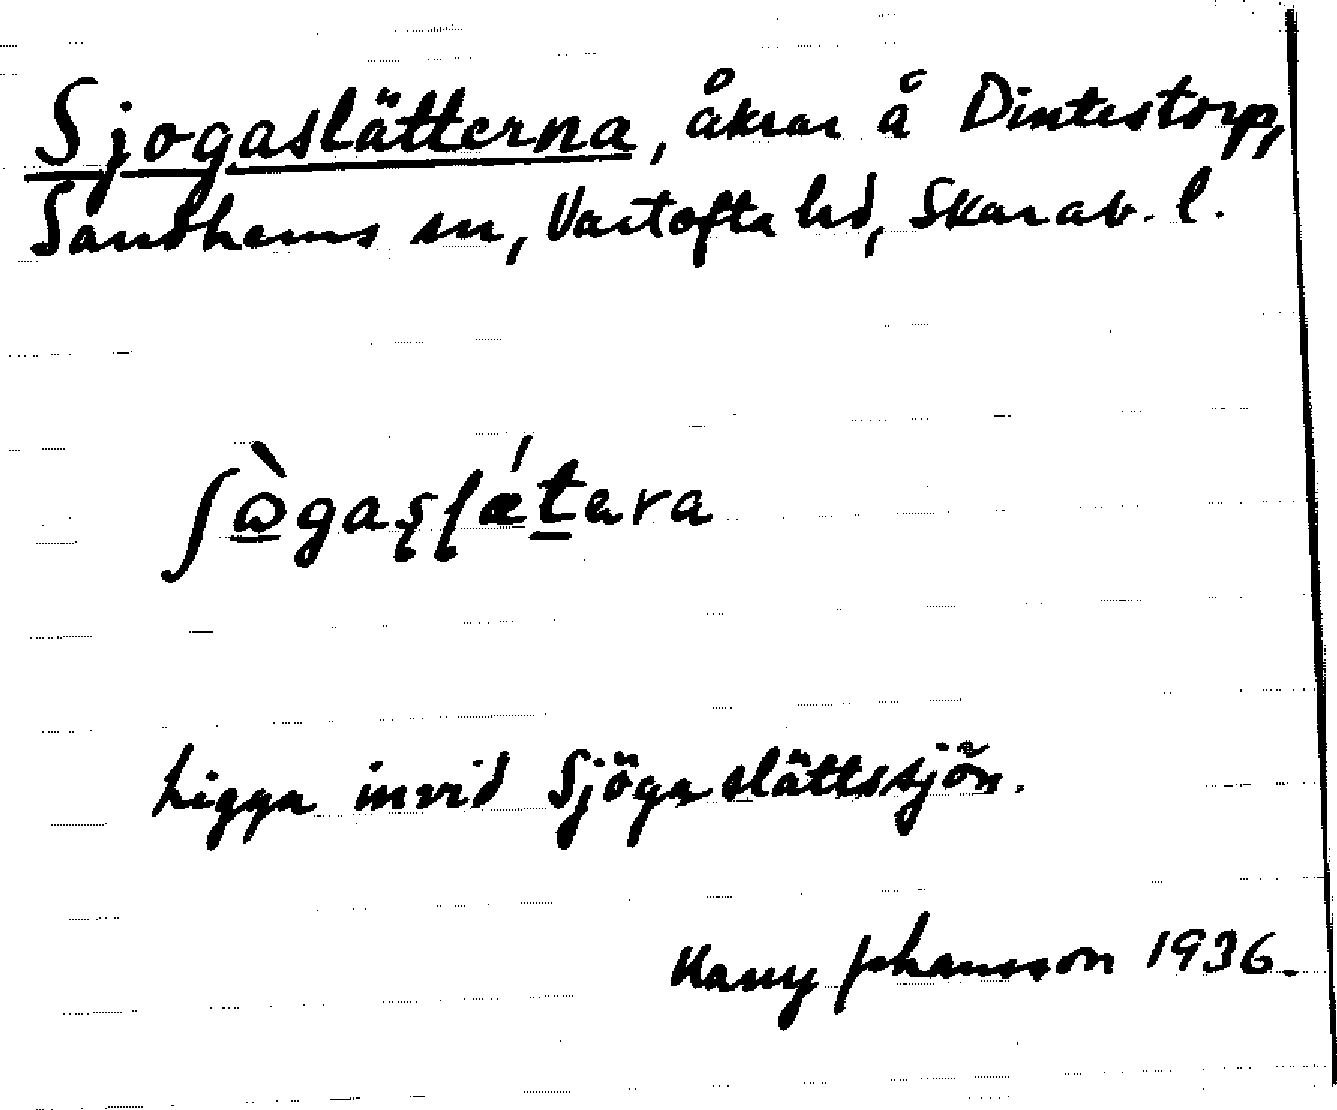 Sjogaslätterna, åkrar å Dintestorp,
Sandhems sn, Vartofta hd, Skarab. l.
ʃὼ̲gaʂɭǽt̲ara
Ligga invid Sjögaslättssjön.
Johansson 1936.